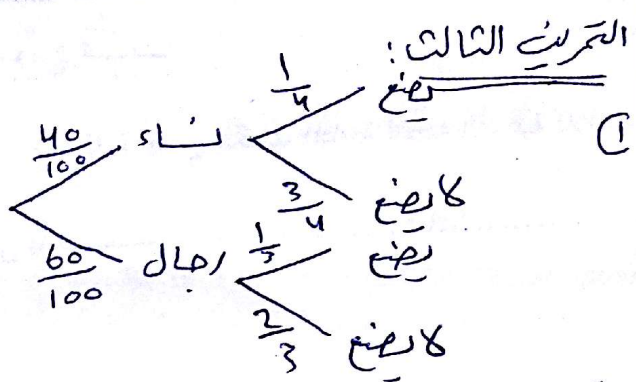 التمرين الثالث:
①
1/4 يضع
40/100 نساء
3/4 لا يضع
60/100 رجال 1/3 يضع
2/3 لا يضع